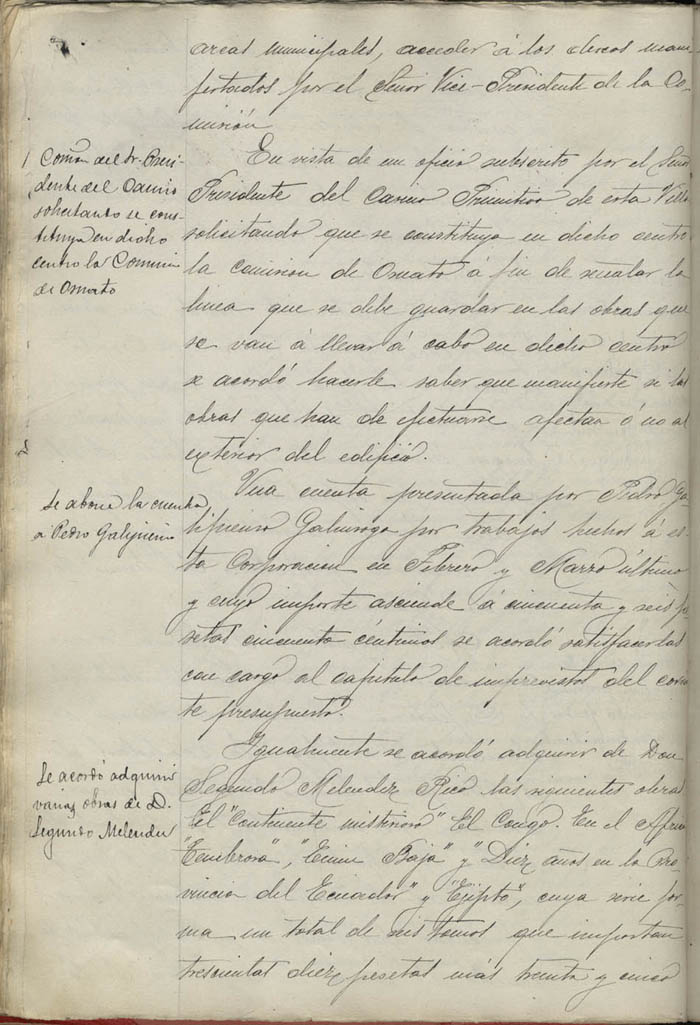 arcas municipales, acceder á los deseos mani-
festados por el Señor Vice-Presidente de la Co-
misión
Comón del Sr. Presi-
dente del Casino
solicitando se cons-
tituya en dicho
centro la Comision
de Ornato
En vista de un oficio subscrito por el Señor
Presidente del Casino Primitivo de esta Villa
solicitando que se constituya en dicho centro
la comision de Ornato á fin de señalar la
linea que se debe guardar en las obras que
se van á llevar á cabo en dicho centro
se acordó hacerle saber que manifieste si las
obras que han de efectuarse afectan ó no al
exterior del edificio.
Se abone la cuenta
a Pedro Galijnieno
Una cuenta presentada por Pedro Ga-
por trabajos hechos á es-
ta Corporacion en Febrero y Marzo último
y cuyo importe asciende á cincuenta y seis pe-
setas cincuenta céntimos se acordó satisfacerlas
con cargo al capitulo de imprevistos del corrien-
te presupuesto.
Se acordó adquirir
varias obras de D.
Segundo Melendez
Igualmente se acordó adquirir de Don
Segundo Melendez Rico las siguientes obras
El "Continente misterioso" El Congo. En el Africa
"Tenebrosa", "Emin Bajá" y "Diez años en la Pro-
vincia del Ecuador" y "Egipto", cuya serie for-
ma un total de seis tomos que importan
trescientas diez pesetas más treinta y cinco